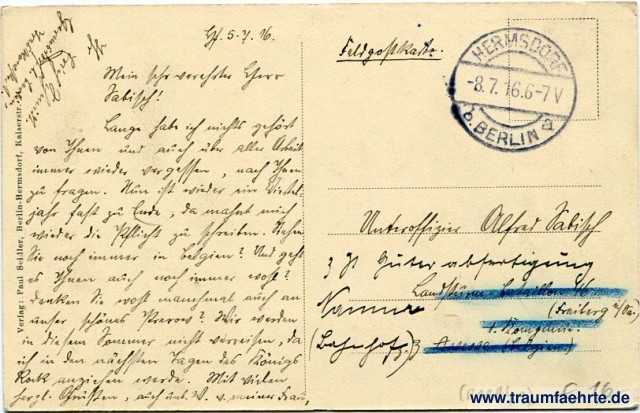 Hf. 5.7.16.
Mein sehr verehrter Herr
Sabisch!
Lange habe ich nichts gehört
von Ihnen und auch über aller Arbeit
immer wieder vergessen, nach Ihnen
zu fragen. Nun ist wieder ein Viertel-
jahr fast zu Ende, da mahnt mich
wieder die Pflicht zu schreiben. Stehen
Sie noch immer in Belgien? Und geht
es Ihnen auch noch immer wohl?
denken Sie wohl manchmal auch an
unser schönes Prerow? Wir werden
in diesem Sommer nicht verreisen, da
ich in den nächsten Tagen des Königs
Rock anziehen werde. Mit vielen
herzl. Grüßen, auch ans. W. v. meiner Frau,
Verlag: Paul Seidler, Berlin-Hermsdorf, Kaiserstr.
Feldpostkarte.
HERMSDORF
-8.7.16.6-7V
b. BERLIN a
Unteroffizier Alfred Sabisch
z Zt Güterabfertigung
Landsturm-Bataillon
Namur (Freiberg i/Sa.)
1. Kompanie
(Bahnhof)
(Belgien)
www.traumfaehrte.de